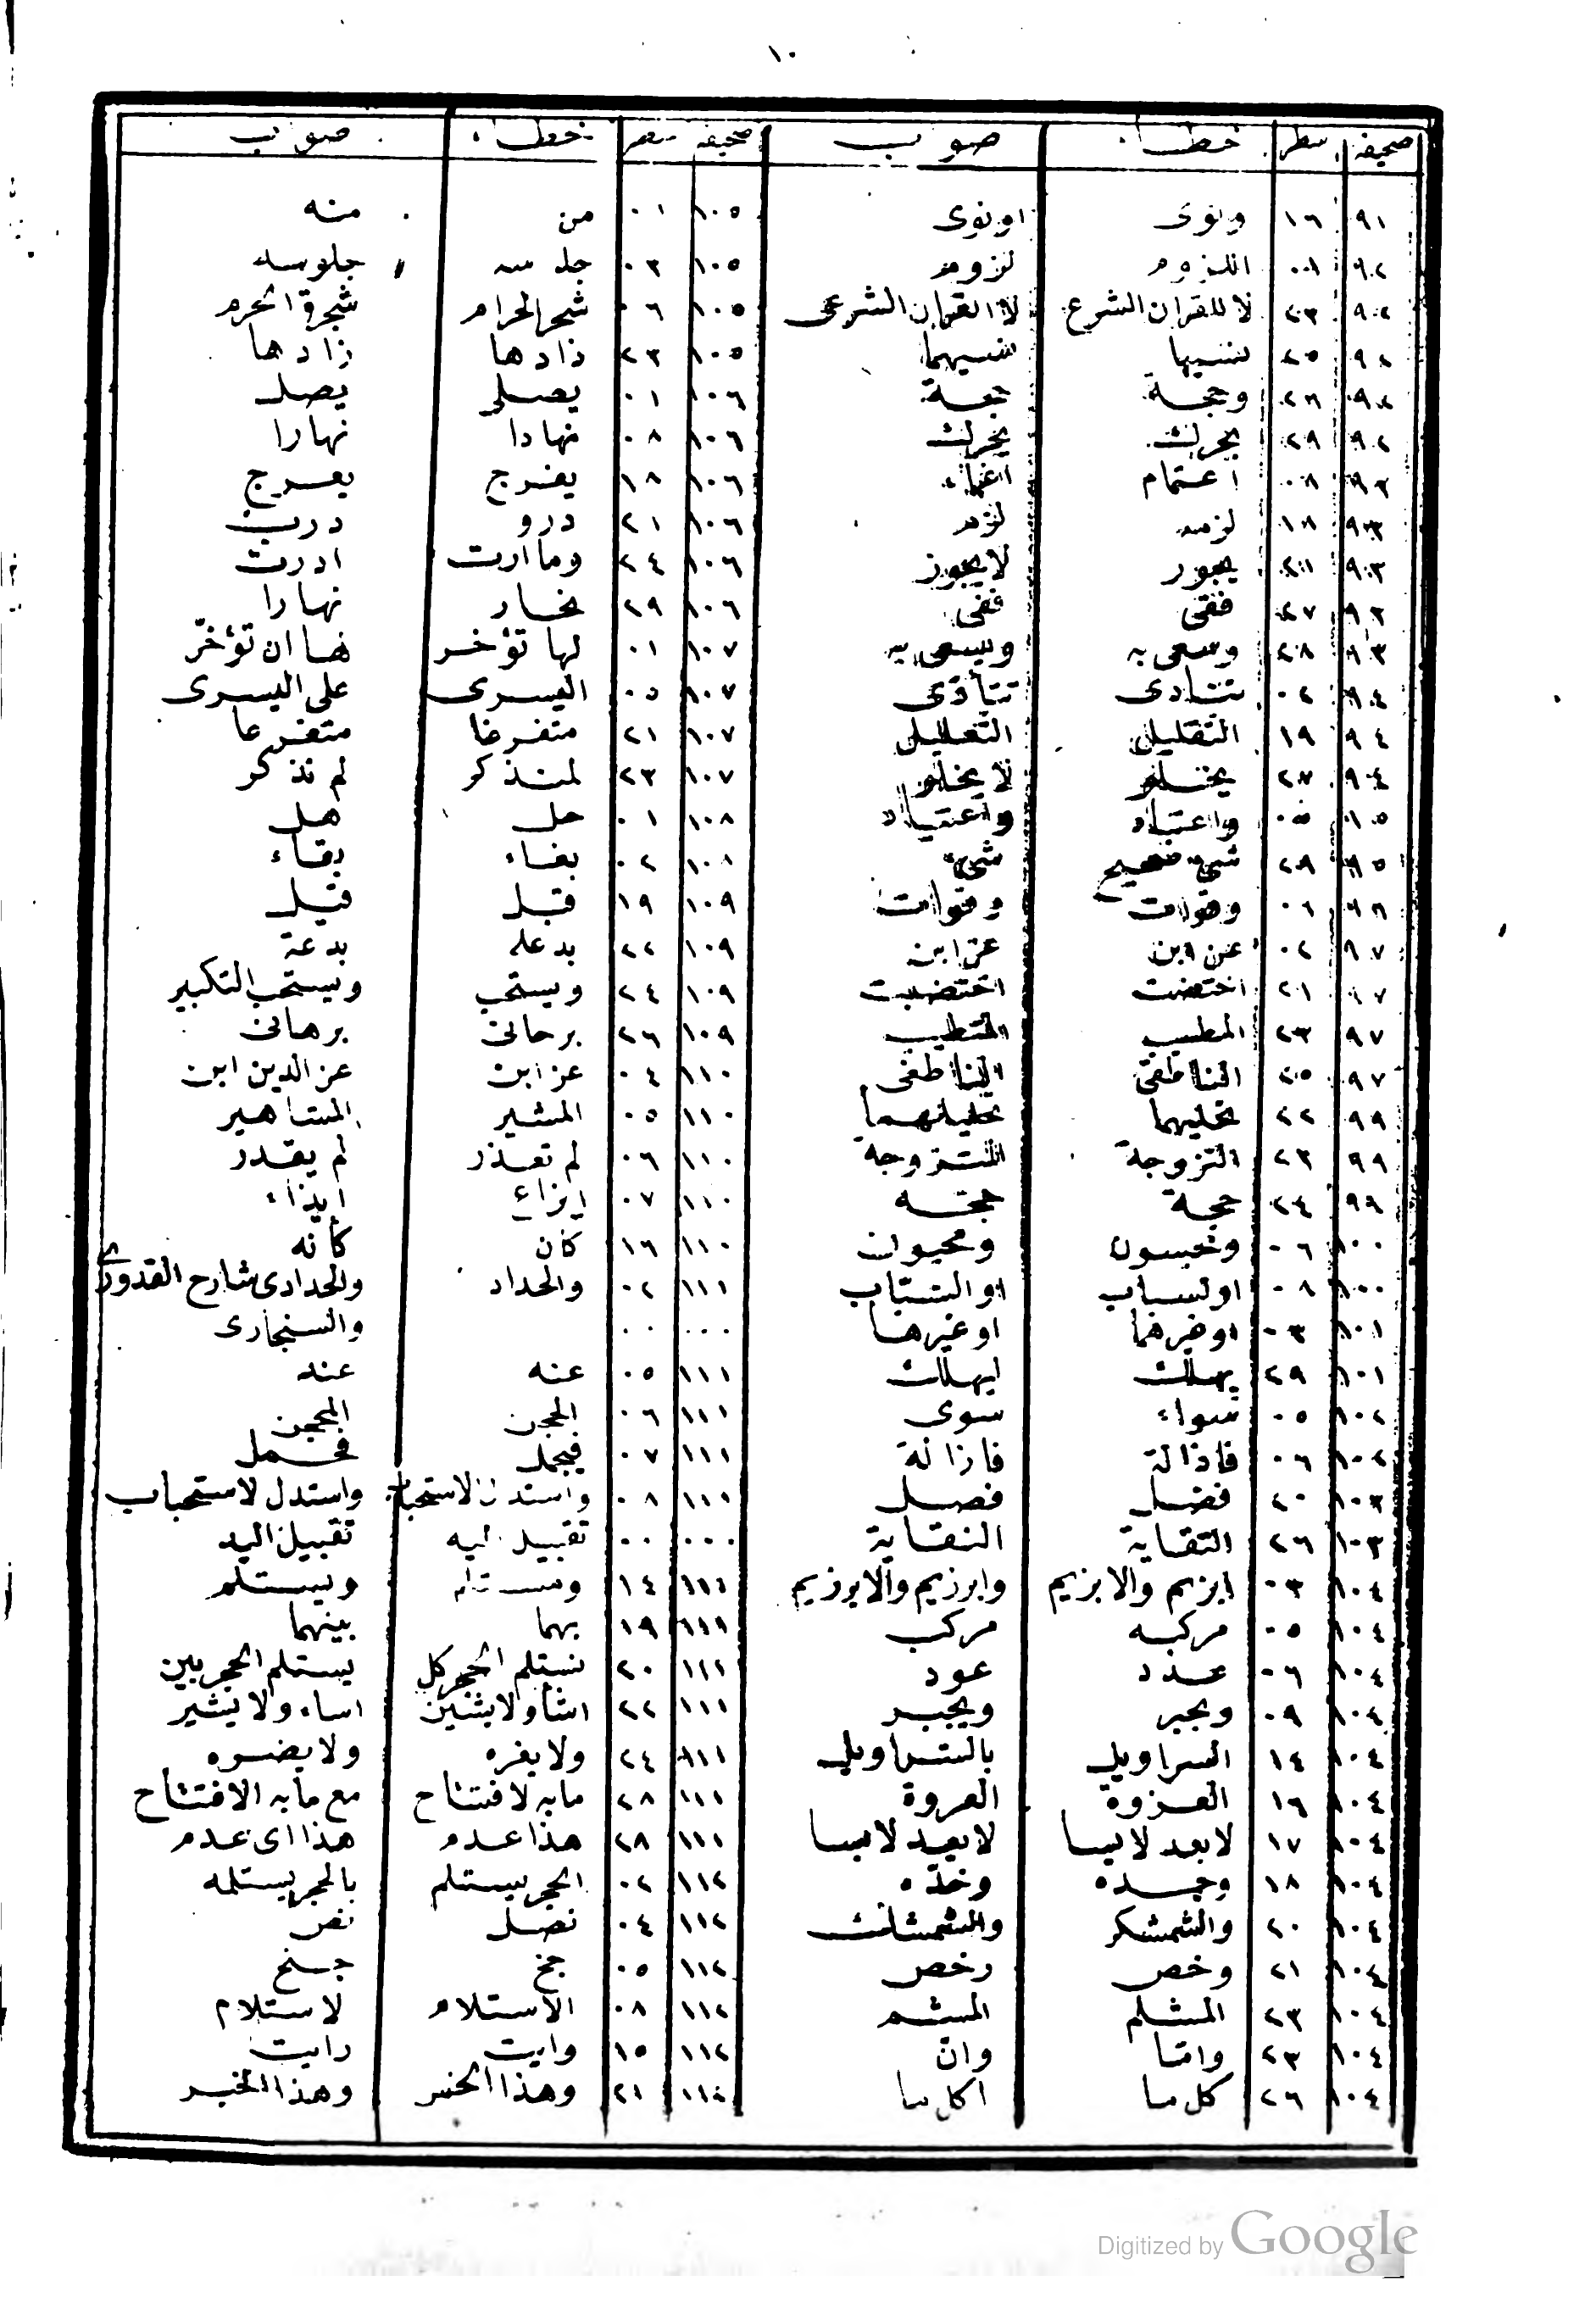 ١٠
صحيفه سطر خطاء صواب صحيفه سطر خطاء صواب
٩١ ١٦ ونوى اونوى ١٠٥ ٠١ من منه
٩٢ ٠١ اللزوم لزوم ١٠٥ ٠٣ جلسه جلوسه
٩٢ ٢٣ لا للقران الشرع لا القران الشرعى ١٠٥ ٠٦ شجر الحرام شجرة الحرم
٩٢ ٢٥ نسيها نسيهما ١٠٥ ٢٣ ذادها زادها
٩٢ ٢٦ وحجة حجة ١٠٦ ٠١ يصلى يصل
٩٢ ٢٩ ١٠٦ ٠٨ نهادا نهارا
٩٣ ٠٨ اعتمام اغماء ١٠٦ ١٨ يفرج يعرج
٩٣ ١٨ لزمه لزم ١٠٦ ٢١ درو درب
٩٣ ٢١ يجوز لايجوز ١٠٦ ٢٤ وما ارت ادرت
٩٣ ٢٧ فقى ففى ١٠٦ ٢٩ نهارا
٩٣ ٢٨ وسعى به ويسعى به ١٠٧ ٠١ لها تؤخر لها ان تؤخر
٩٤ ٠٢ تتادى تتأذى ١٠٧ ٠٥ اليسرى على اليسرى
٩٤ ١٩ التقليل التعليل ١٠٧ ٢١ متفرغا متفرعا
٩٤ ٢٧ يخلو لا يخلو ١٠٧ ٢٣ لمنذكر لم نذكر
٩٥ واعتباد واعتياد ١٠٨ ٠١ حل هل
٩٥ ٢٩ شئ صحيح شئ ١٠٨ ٠٢ بغاء بقاء
٩٦ ٠٦ وقوامت وقوامت ١٠٩ ١٩ قبل قبيل
٩٧ ٠٢ عن ابن عز ابن ١٠٩ ٢٢ بدعله بدعة
٩٧ ٢١ اختضت اختضبت ١٠٩ ٢٤ ويستحب ويستحب التكبير
٩٧ ٢٣ المطيب المتطيب ١٠٩ ٢٦ برحانى برهانى
٩٧ ٢٥ الناطقى الناطفى ١١٠ ٠٤ عز ابن عز الدين ابن
٩٩ ٢٢ تحليهما تحليلهما ١١٠ ٠٥ المشير المشاهير
٩٩ ٢٣ التزوجة المتزوجة ١١٠ ٠٦ لم تعذر لم يقدر
٩٩ ٢٤ حجة حجته ١١٠ ٠٧ ايزاء ايذاء
١٠٠ ٠٦ ١١٠ ١٦ كان كأنه
١٠٠ ٠٨ اولسباب اوالستاب ١١١ ٠٢ والحداد والحدادى شارح القدورى
١٠١ ٠٣ اوضرهما اوغيرها ٠٠٠ ٠٠ والسنجارى
١٠١ ٢٩ يهلك ليهلك ١١١ ٠٥ عنه عند
١٠٢ ٠٥ سواء سوى ١١١ ٠٦ الحجن المحجن
١٠٢ ٠٦ فاذالة فازالة ١١١ ٠٧ فيجمل فحمل
١٠٣ ٢٠ فضل فصل ١١١ ٠٨ واستدل الاستحباب واستدل لاستحباب
١٠٣ ٢٦ التقاية النقاية ٠٠٠ ٠٠ تقبيل ليه تقبيل اليد
١٠٤ ٠٣ ابزيم والابزيم وابرزيم والابرزيم ١١١ ١٤ ويستلم
١٠٤ ٠٥ مركبه مركب ١١١ ١٩ بهما بينهما
١٠٤ ٠٦ عدد عود ١١١ ٢٠ نستلم الحجر كل يستلم الحجر بين
١٠٤ ٠٩ وبجبر ويجبر ١١١ ٢٢ اشأ ولا يشين اساء ولا يشير
١٠٤ ١٤ السراويل بالسراويل ١١١ ٢٤ ولا يغره ولا يضره
١٠٤ ١٦ العزوة العروة ١١١ ٢٨ مابه لافتتاح مع مابه الافتتاح
١٠٤ ١٧ لا بعد لابسا لا يعد لابسا ١١١ ٢٨ هذا عدم هذا اى عدم
١٠٤ ١٨ وجده وخده ١١٢ ٠٢ الحجر يستلم بالحجر يستلمه
١٠٤ ٢٠ والشمشكر والشمشك ١١٢ ٠٤ نصل نص
١٠٤ ٢١ وخص رخص ١١٢ ٠٥ جخ جنح
١٠٤ ٢٣ المشلم المشم ١١٢ ٠٨ الاستلام لاستلام
١٠٤ ٢٣ واما وان ١١٢ ١٥ وايت رايت
١٠٤ ٢٦ كل ما اكل ما ١١٢ ٢١ وهذا الخبر وهذا الخبر
Digitized by Google